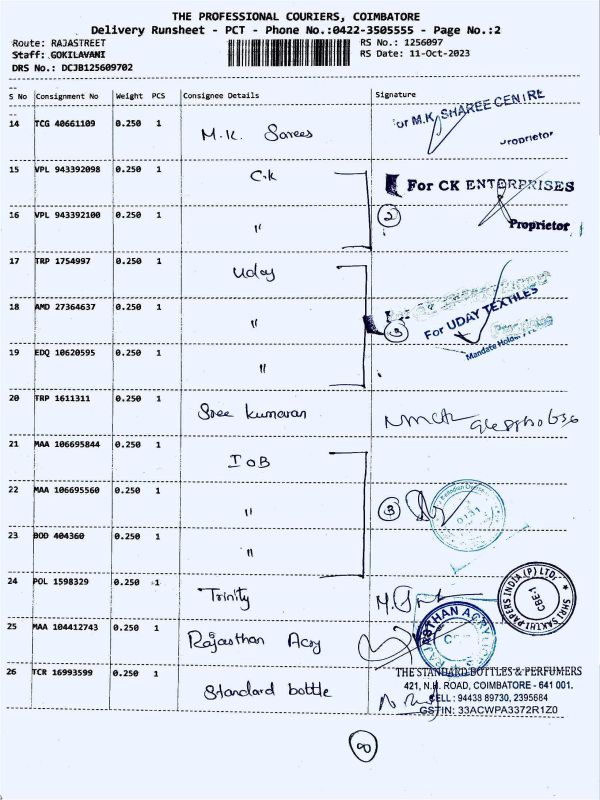 THE PROFESSIONAL COURIERS, COIMBATORE
Delivery Runsheet - PCT - Phone No.:0422-3505555 - Page No.:2
Route: RAJASTREET RS No.: 1256097
Staff: GOKILAVANI RS Date: 11-Oct-2023
DRS No.: DCJB125609702
S No Consignment No Weight PCS Consignee Details Signature
14 TCG 40661109 0.250 1 M.K. Sarees for M.K. SHAREE CENTRE
Proprietor
15 VPL 943392098 0.250 1 C.K For CK ENTERPRISES
16 VPL 943392100 0.250 1 " 2 Proprietor
17 TRP 1754997 0.250 1 Uday
18 AMD 27364637 0.250 1 " 3 For UDAY TEXTILES
Mandate Holder
19 EDQ 10620595 0.250 1 "
20 TRP 1611311 0.250 1 Sree Kumaran
21 MAA 106695844 0.250 1 IOB
22 MAA 106695560 0.250 1 " 3 0131
23 BOD 404360 0.250 1 "
24 POL 1598329 0.250 1 Trinity SHRI SAKTHI PAPERS INDIA (P) LTD. CBE-1
25 MAA 104412743 0.250 1 Rajasthan Acry RAJASTHAN ACRYLICS
26 TCR 16993599 0.250 1 Standard bottle THE STANDARD BOTTLES & PERFUMERS
421, N.H. ROAD, COIMBATORE - 641 001.
CELL: 94438 89730, 2395684
GSTIN: 33ACWPA3372R1Z0
8